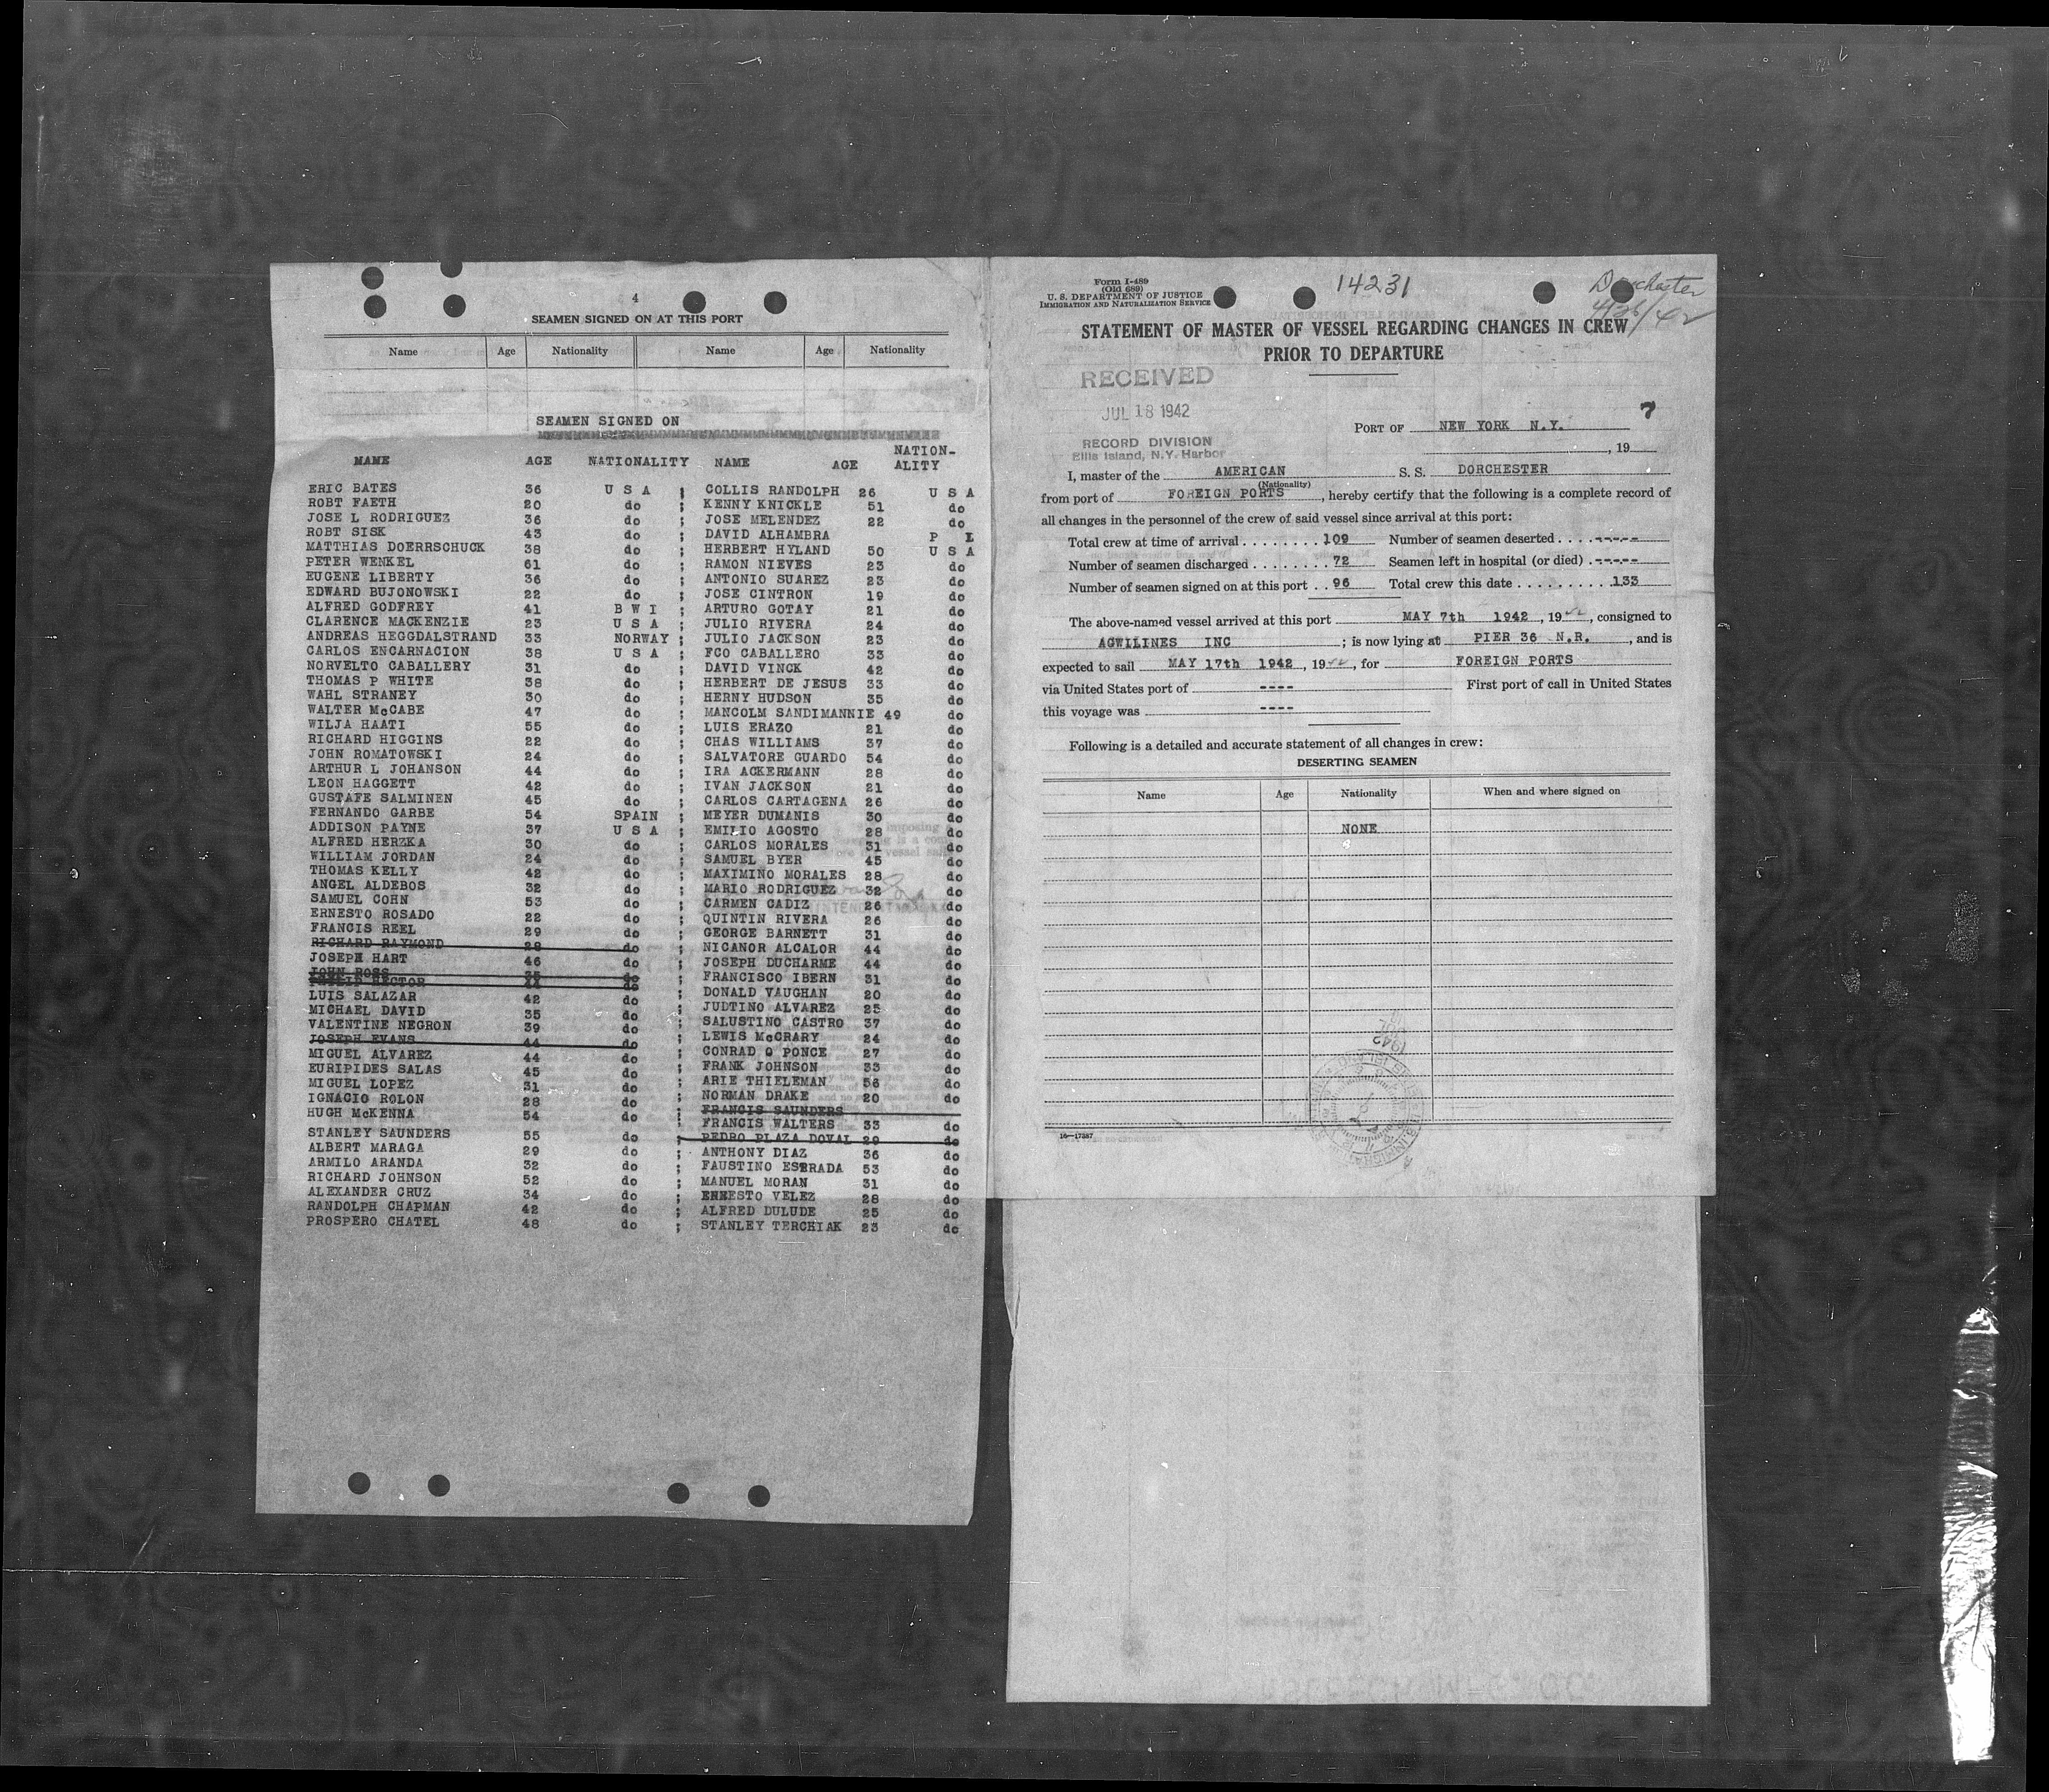 4
SEAMEN SIGNED ON AT THIS PORT
Name Age Nationality Name Age Nationality
SEAMEN SIGNED ON
NAME AGE NATIONALITY NAME AGE NATION-
ALITY
ERIC BATES 36 U S A ; COLLIS RANDOLPH 26 U S A
ROBT FAETH 20 do ; KENNY KNICKLE 51 do
JOSE L RODRIGUEZ 36 do ; JOSE MELENDEZ 22 do
ROBT SISK 43 do ; DAVID ALHAMBRA P I
MATTHIAS DOERRSCHUCK 38 do ; HERBERT HYLAND 50 U S A
PETER WENKEL 61 do ; RAMON NIEVES 23 do
EUGENE LIBERTY 36 do ; ANTONIO SUAREZ 23 do
EDWARD BUJONOWSKI 22 do ; JOSE CINTRON 19 do
ALFRED GODFREY 41 B W I ; ARTURO GOTAY 21 do
CLARENCE MACKENZIE 23 U S A ; JULIO RIVERA 24 do
ANDREAS HEGGDALSTRAND 33 NORWAY ; JULIO JACKSON 23 do
CARLOS ENCARNACION 38 U S A ; FCO CABALLERO 33 do
NORVELTO CABALLERY 31 do ; DAVID VINCK 42 do
THOMAS P WHITE 38 do ; HERBERT DE JESUS 33 do
WAHL STRANEY 30 do ; HERNY HUDSON 35 do
WALTER McCABE 47 do ; MANCOLM SANDIMANNIE 49 do
WILJA HAATI 55 do ; LUIS ERAZO 21 do
RICHARD HIGGINS 22 do ; CHAS WILLIAMS 37 do
JOHN ROMATOWSKI 24 do ; SALVATORE GUARDO 54 do
ARTHUR L JOHANSON 44 do ; IRA ACKERMANN 28 do
LEON HAGGETT 42 do ; IVAN JACKSON 21 do
GUSTAFE SALMINEN 45 do ; CARLOS CARTAGENA 26 do
FERNANDO GARBE 54 SPAIN ; MEYER DUMANIS 30 do
ADDISON PAYNE 37 U S A ; EMILIO AGOSTO 28 do
ALFRED HERZKA 30 do ; CARLOS MORALES 31 do
WILLIAM JORDAN 24 do ; SAMUEL BYER 45 do
THOMAS KELLY 42 do ; MAXIMINO MORALES 28 do
ANGEL ALDEBOS 32 do ; MARIO RODRIGUEZ 32 do
SAMUEL COHN 53 do ; CARMEN CADIZ 26 do
ERNESTO ROSADO 22 do ; QUINTIN RIVERA 26 do
FRANCIS REEL 29 do ; GEORGE BARNETT 31 do
RICHARD RAYMOND 28 do ; NICANOR ALCALOR 44 do
JOSEPH HART 46 do ; JOSEPH DUCHARME 44 do
JOHN ROSS 35 do ; FRANCISCO IBERN 31 do
HECTOR do
LUIS SALAZAR 42 do ; DONALD VAUGHAN 20 do
MICHAEL DAVID 35 do ; JUDTINO ALVAREZ 25 do
VALENTINE NEGRON 39 do ; SALUSTINO CASTRO 37 do
JOSEPH EVANS 44 do ; LEWIS McCRARY 24 do
MIGUEL ALVAREZ 44 do ; CONRAD O PONCE 27 do
EURIPIDES SALAS 45 do ; FRANK JOHNSON 33 do
MIGUEL LOPEZ 31 do ; ARIE THIELEMAN 56 do
IGNACIO ROLON 28 do ; NORMAN DRAKE 20 do
HUGH McKENNA 54 do ; FRANCIS SAUNDERS
FRANCIS WALTERS 33 do
STANLEY SAUNDERS 55 do ; PEDRO PLAZA DOVAL 29 do
ALBERT MARAGA 29 do ANTHONY DIAZ 36 do
ARMILO ARANDA 32 do ; FAUSTINO ESTRADA 53 do
RICHARD JOHNSON 52 do ; MANUEL MORAN 31 do
ALEXANDER CRUZ 34 do ; ERNESTO VELEZ 28 do
RANDOLPH CHAPMAN 42 do ; ALFRED DULUDE 25 do
PROSPERO CHATEL 48 do ; STANLEY TERCHIAK 23 do
Form I-489
(Old 689)
U. S. DEPARTMENT OF JUSTICE
IMMIGRATION AND NATURALIZATION SERVICE
14231
Dorchester
4/26/42
STATEMENT OF MASTER OF VESSEL REGARDING CHANGES IN CREW
PRIOR TO DEPARTURE
RECEIVED
JUL 18 1942
RECORD DIVISION
Ellis Island, N.Y. Harbor
7
PORT OF NEW YORK N.Y.
, 19
I, master of the AMERICAN S. S. DORCHESTER
(Nationality)
from port of FOREIGN PORTS, hereby certify that the following is a complete record of
all changes in the personnel of the crew of said vessel since arrival at this port:
Total crew at time of arrival . . . . . . . . 109 Number of seamen deserted . . . . -----
Number of seamen discharged . . . . . . . . 72 Seamen left in hospital (or died) . -----
Number of seamen signed on at this port . . 96 Total crew this date . . . . . . . . . . 133
The above-named vessel arrived at this port MAY 7th 1942, 1942, consigned to
AGWILINES INC ; is now lying at PIER 36 N.R., and is
expected to sail MAY 17th 1942, 1942, for FOREIGN PORTS
via United States port of ---- First port of call in United States
this voyage was ----
Following is a detailed and accurate statement of all changes in crew:
DESERTING SEAMEN
Name Age Nationality When and where signed on
NONE
16—17287